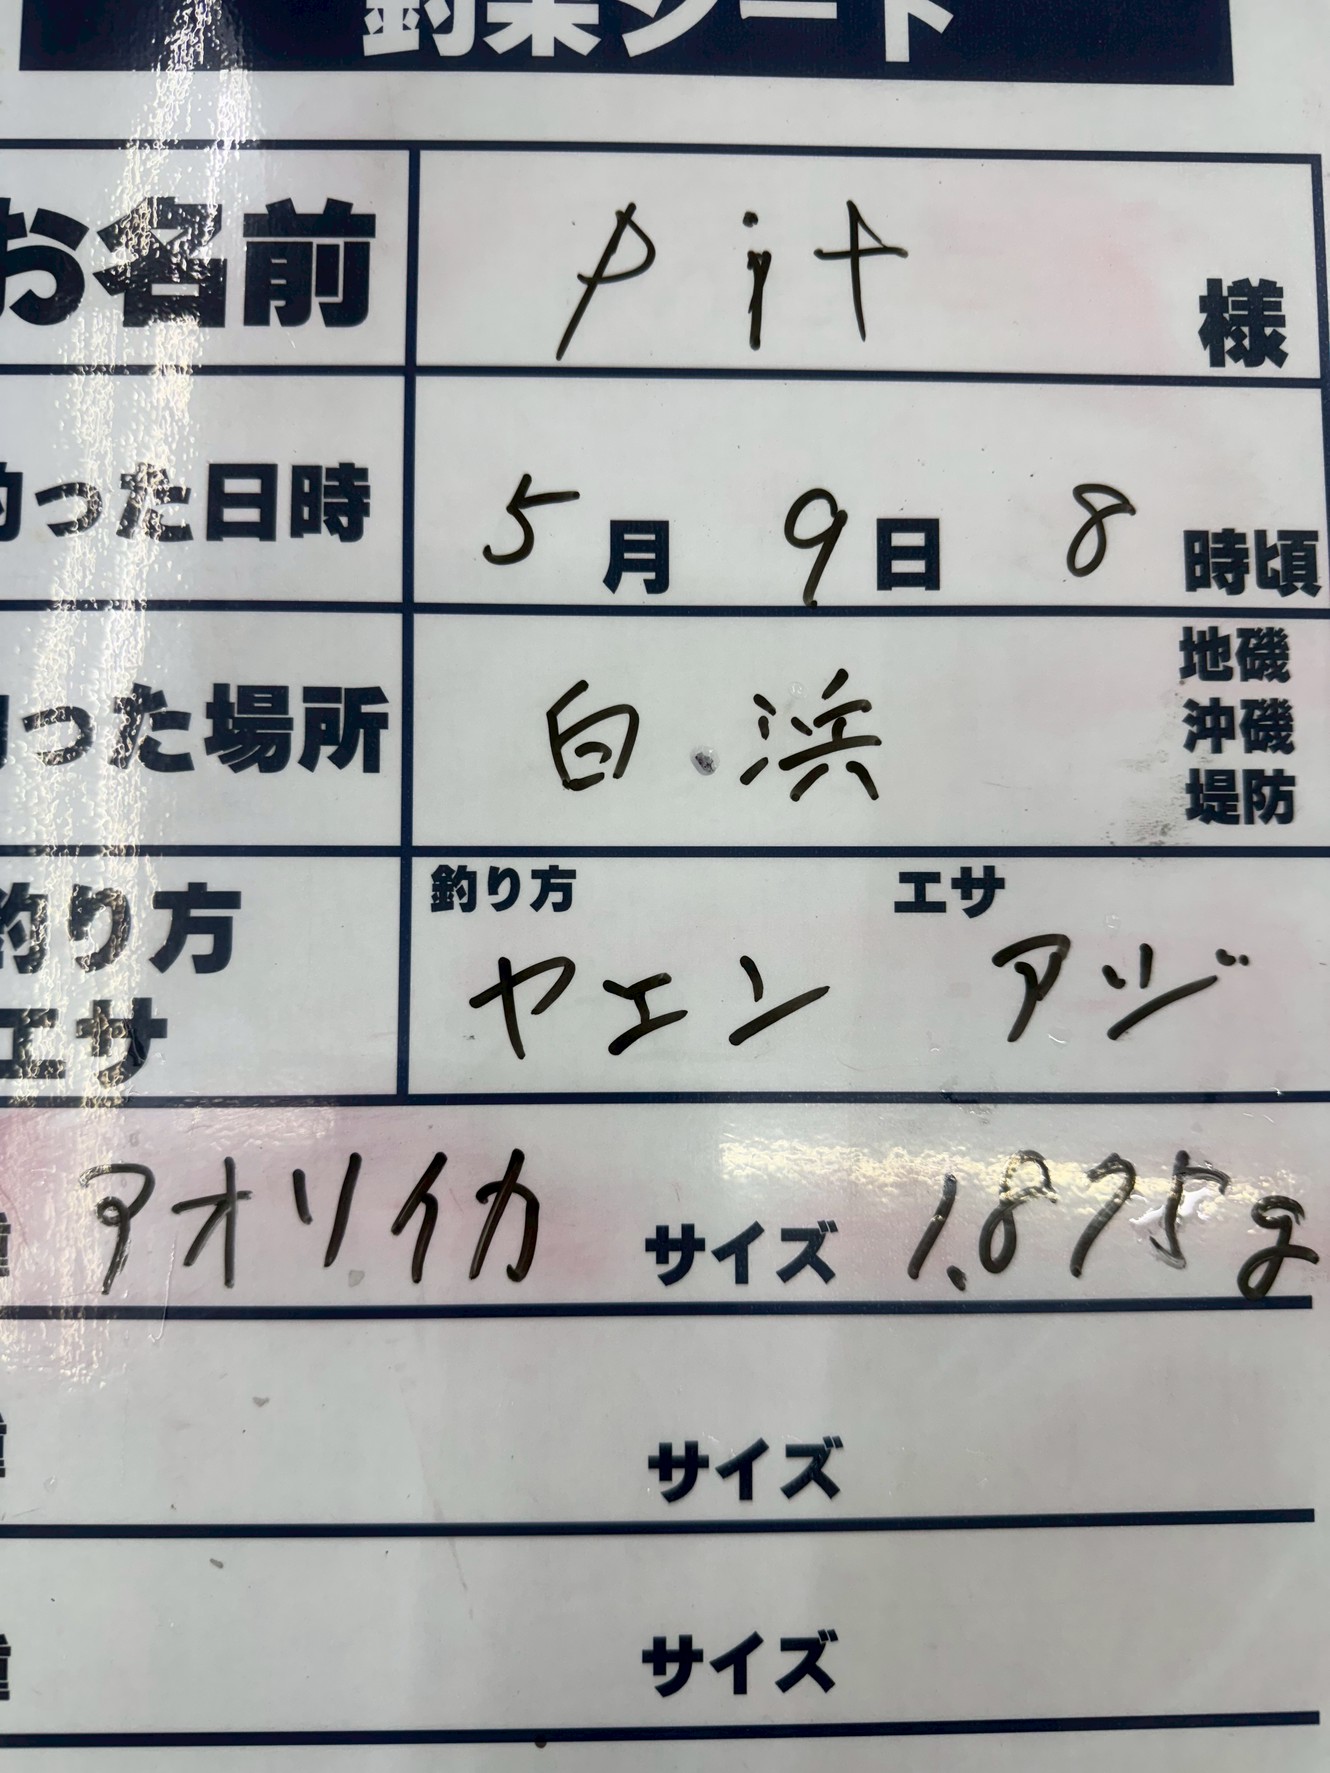 釣果シート
お名前 pit 様
釣った日時 5月9日 8時頃
地磯
釣った場所 白浜 沖磯
堤防
釣り方 エサ
釣り方 ヤエン アジ
エサ
種 アオリイカ サイズ 1.875g
種 サイズ
種 サイズ